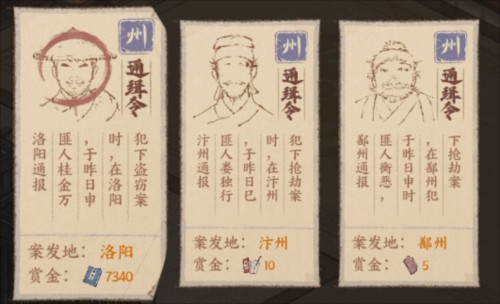 州
通缉令
洛阳通报
匪人桂金万
,于昨日申
时,在洛阳
犯下盗窃案
案发地: 洛阳
赏金: 7340
州
通缉令
汴州通报
匪人娄独行
,于昨日巳
时,在汴州
犯下抢劫案
案发地: 汴州
赏金: 10
州
通缉令
鄯州通报
匪人衡恶,
于昨日申时
,在鄯州犯
下抢劫案
案发地: 鄯州
赏金: 5